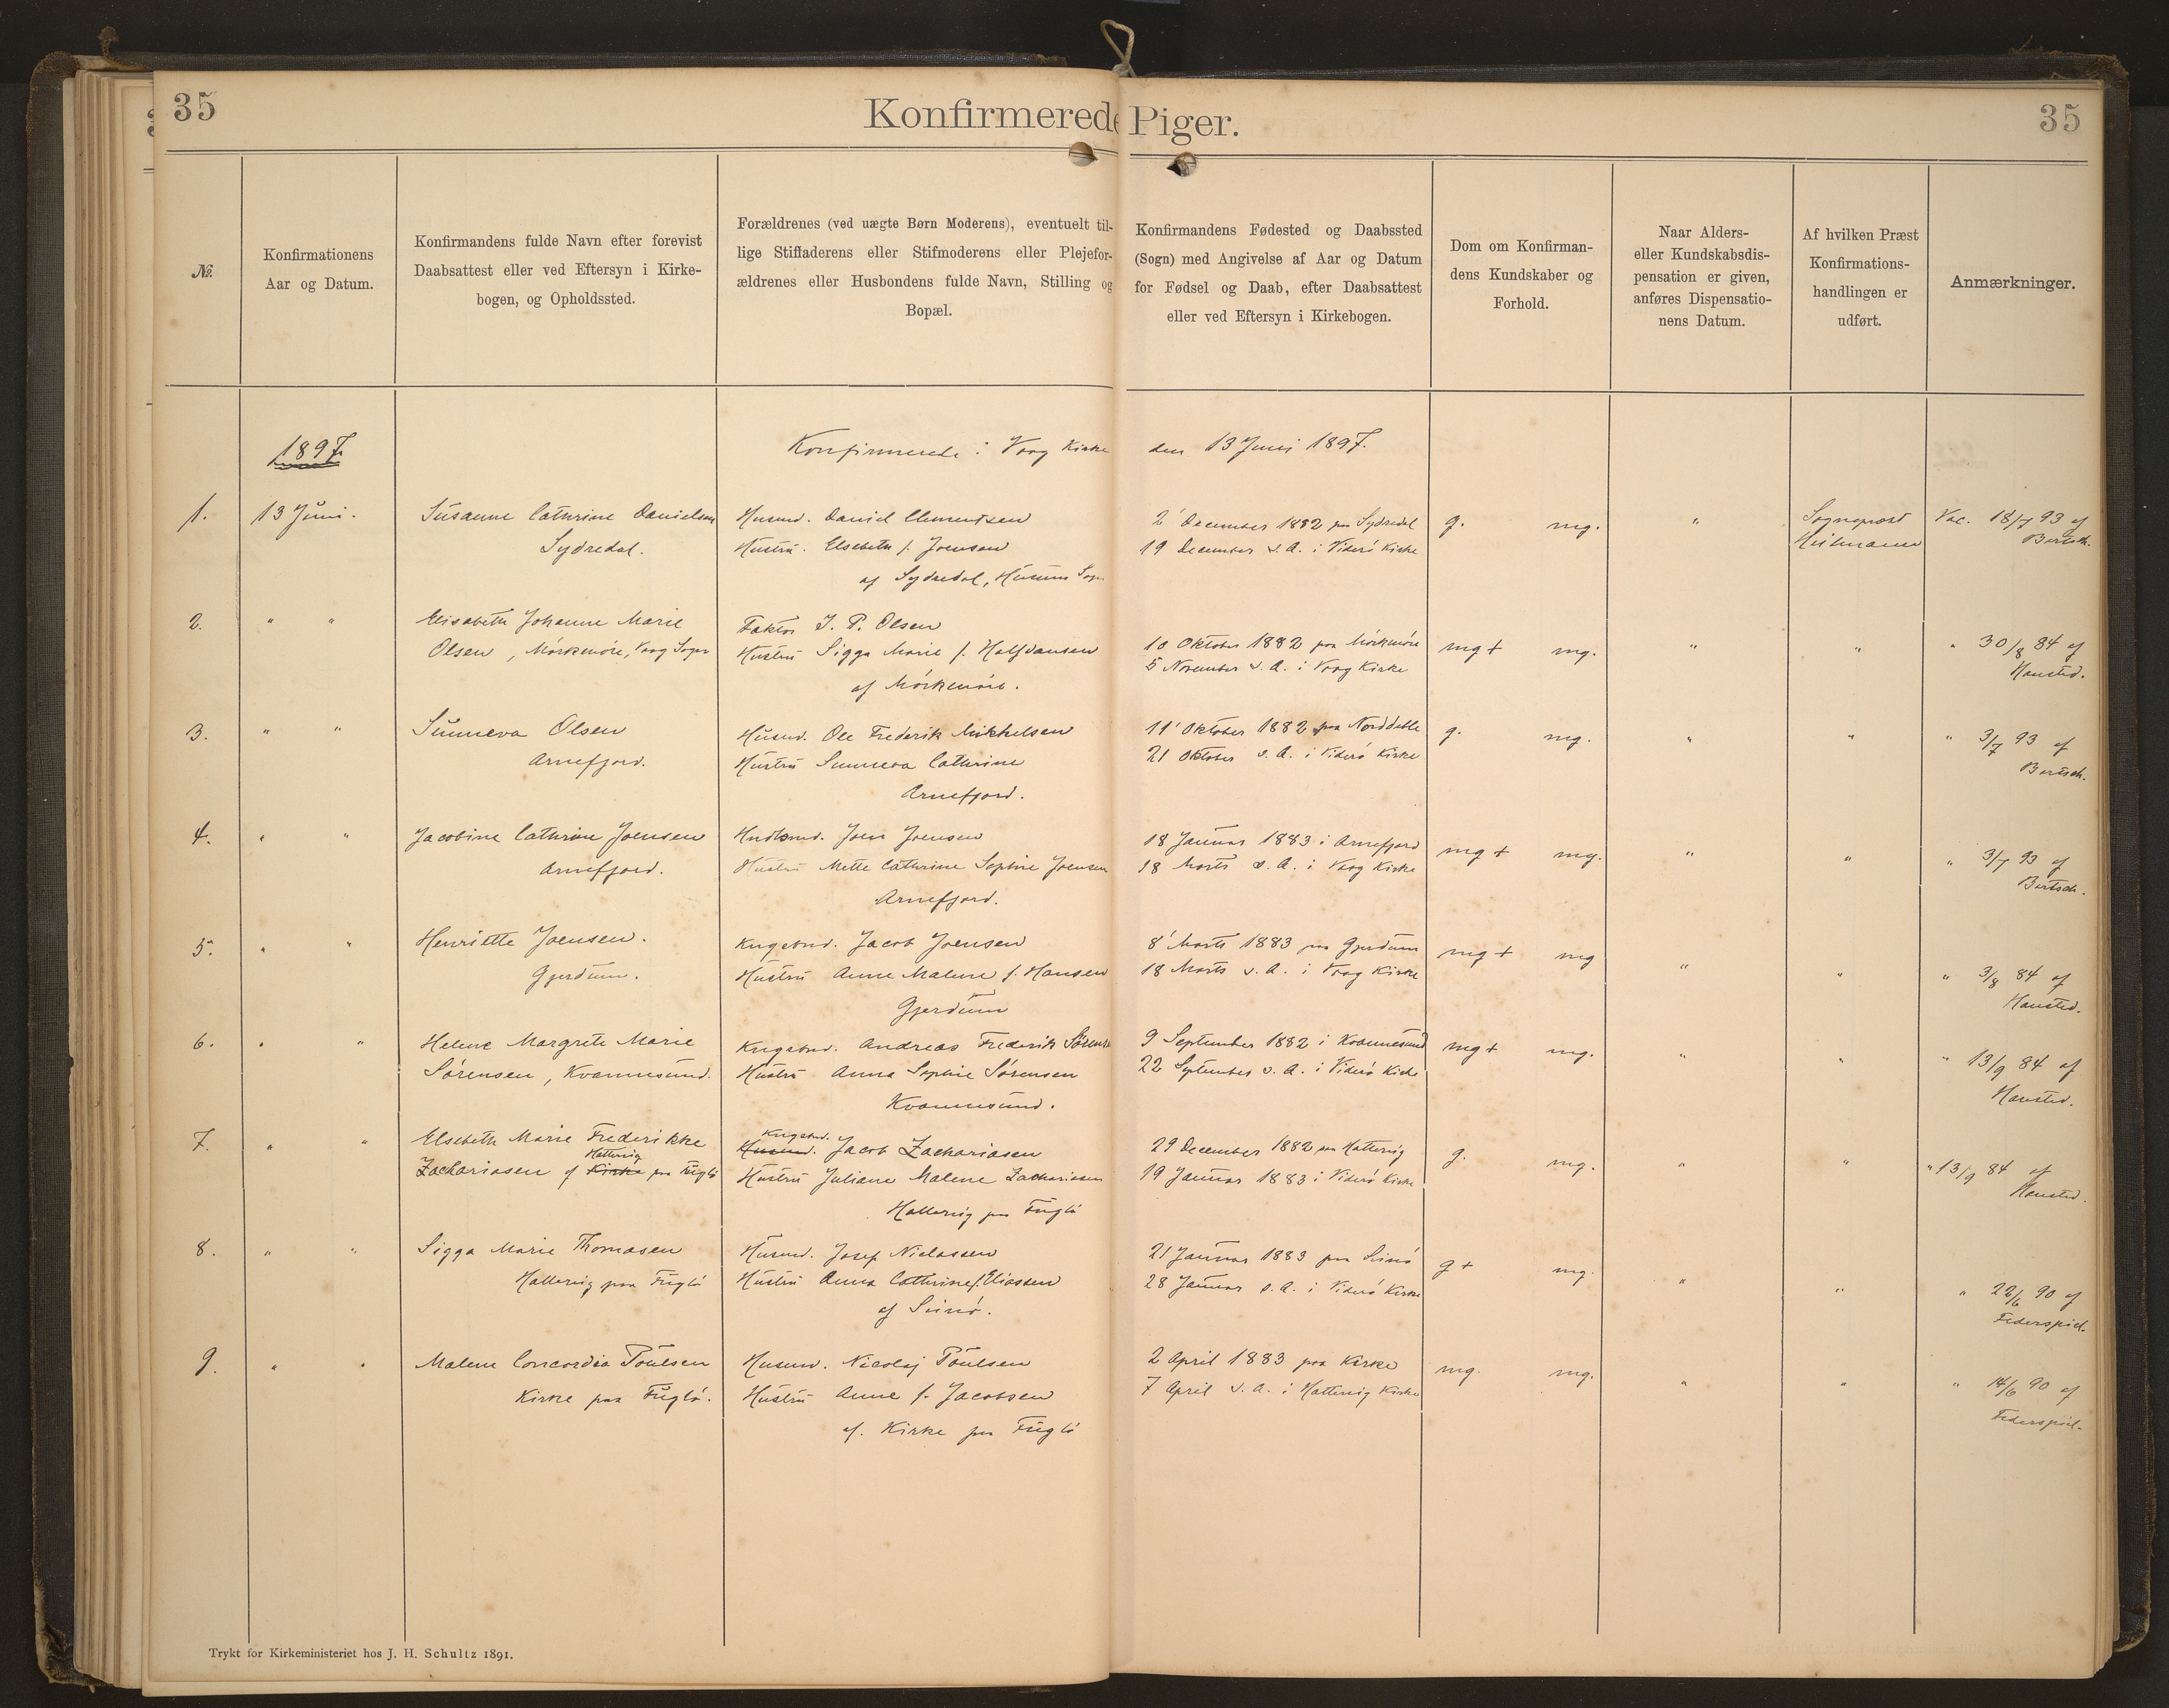 35
Konfirmerede Piger.
35
№
Konfirmationens
Aar og Datum.
Konfirmandens fulde Navn efter forevist
Daabsattest eller ved Eftersyn i Kirke-
bogen, og Opholdssted.
Forældrenes (ved uægte Børn Moderens), eventuelt til-
lige Stiffaderens eller Stifmoderens eller Plejefor-
ældrenes eller Husbondens fulde Navn, Stilling og
Bopæl.
Konfirmandens Fødested og Daabssted
(Sogn) med Angivelse af Aar og Datum
for Fødsel og Daab, efter Daabsattest
eller ved Eftersyn i Kirkebogen.
Dom om Konfirman-
dens Kundskaber og
Forhold.
Naar Alders-
eller Kundskabsdis-
pensation er given,
anføres Dispensatio-
nens Datum.
Af hvilken Præst
Konfirmations-
handlingen er
udført.
Anmærkninger.
1897.
Konfirmerede i Vaag Kirke den 13 Juni 1897.
1.
13 Juni.
Susanne Cathrine Danielsen
Sydredal.
Husmd. Daniel Clementsen
Hustru. Elsebeth f. Joensen
af Sydredal, Husum Sogn
2' December 1882 paa Sydredal
19 December s. A. i Viderø Kirke
g. mg.
"
Sognepræst
Heilmann
Vac. 18/7 93 af
Bertsch.
2.
" "
Elisabeth Johanne Marie
Olsen, Mørkmøre, Vaag Sogn
Faktor J. P. Olsen
Hustru Sigga Marie f. Halfdansen
af Mørkmøre.
10 Oktober 1882 paa Mørkmøre
5 November s. A. i Vaag Kirke
mg+ mg.
"
"
" 30/8 84 af
Hansted.
3.
" "
Sunneva Olsen
Arnefjord.
Husmd. Ole Frederik Mikkelsen
Hustru Sunneva Cathrine
Arnefjord.
11' Oktober 1882 paa Norddeble
21 Oktober s. A. i Viderø Kirke
g. mg.
"
"
" 3/7 93 af
Bertsch.
4.
" "
Jacobine Cathrine Joensen
Arnefjord.
Joen Joensen
Hustru Mette Cathrine Sophie Joensen
Arnefjord.
18 Januar 1883 i Arnefjord
18 Marts s. A. i Vaag Kirke
mg+ mg.
"
"
" 3/7 93 af
Bertsch.
5.
" "
Henriette Joensen.
Gjerdum.
Kngsbnd. Jacob Joensen
Hustru Anne Malene f. Hansen
Gjerdum
8' Marts 1883 paa Gjerdum
18 Marts s. A. i Vaag Kirke
mg+ mg
"
"
" 3/8 84 af
Hansted.
6.
" "
Helene Margrete Marie
Sørensen, Kvannesund.
Kngsbnd. Andreas Frederik Sørensen
Hustru Anna Sophie Sørensen
Kvannesund.
9 September 1882 i Kvannesund
22 September s. A. i Viderø Kirke
mg+ mg.
"
"
" 13/9 84 af
Hansted.
7.
" "
Elsebeth Marie Frederikke
Hattervig
Zachariasen af Kirke paa Fuglø
Kngsbnd.
Husmd. Jacob Zachariasen
Hustru Juliane Malene Zachariasen
Hattervig paa Fuglø
29 December 1882 paa Hattervig
19 Januar 1883 i Viderø Kirke
g. mg.
"
"
" 13/9 84 af
Hansted.
8.
" "
Sigga Marie Thomasen
Hattervig paa Fuglø
Husmd. Josef Niclassen
Hustru Anna Cathrine f. Eliassen
af Svinø.
21 Januar 1883 paa Svinø
28 Januar s. A. i Viderø Kirke
g+ mg.
"
"
" 22/6 90 af
Federspiel.
9.
" "
Malene Concordia Poulsen
Kirke paa Fuglø.
Husmd. Nicolaj Poulsen
Hustru Anne f. Jacobsen
af. Kirke paa Fuglø
2 April 1883 paa Kirke
7 April s. A. i Hattervig Kirke
mg. mg.
"
"
" 14/6 90 af
Federspiel.
Trykt for Kirkeministeriet hos J. H. Schultz 1891.